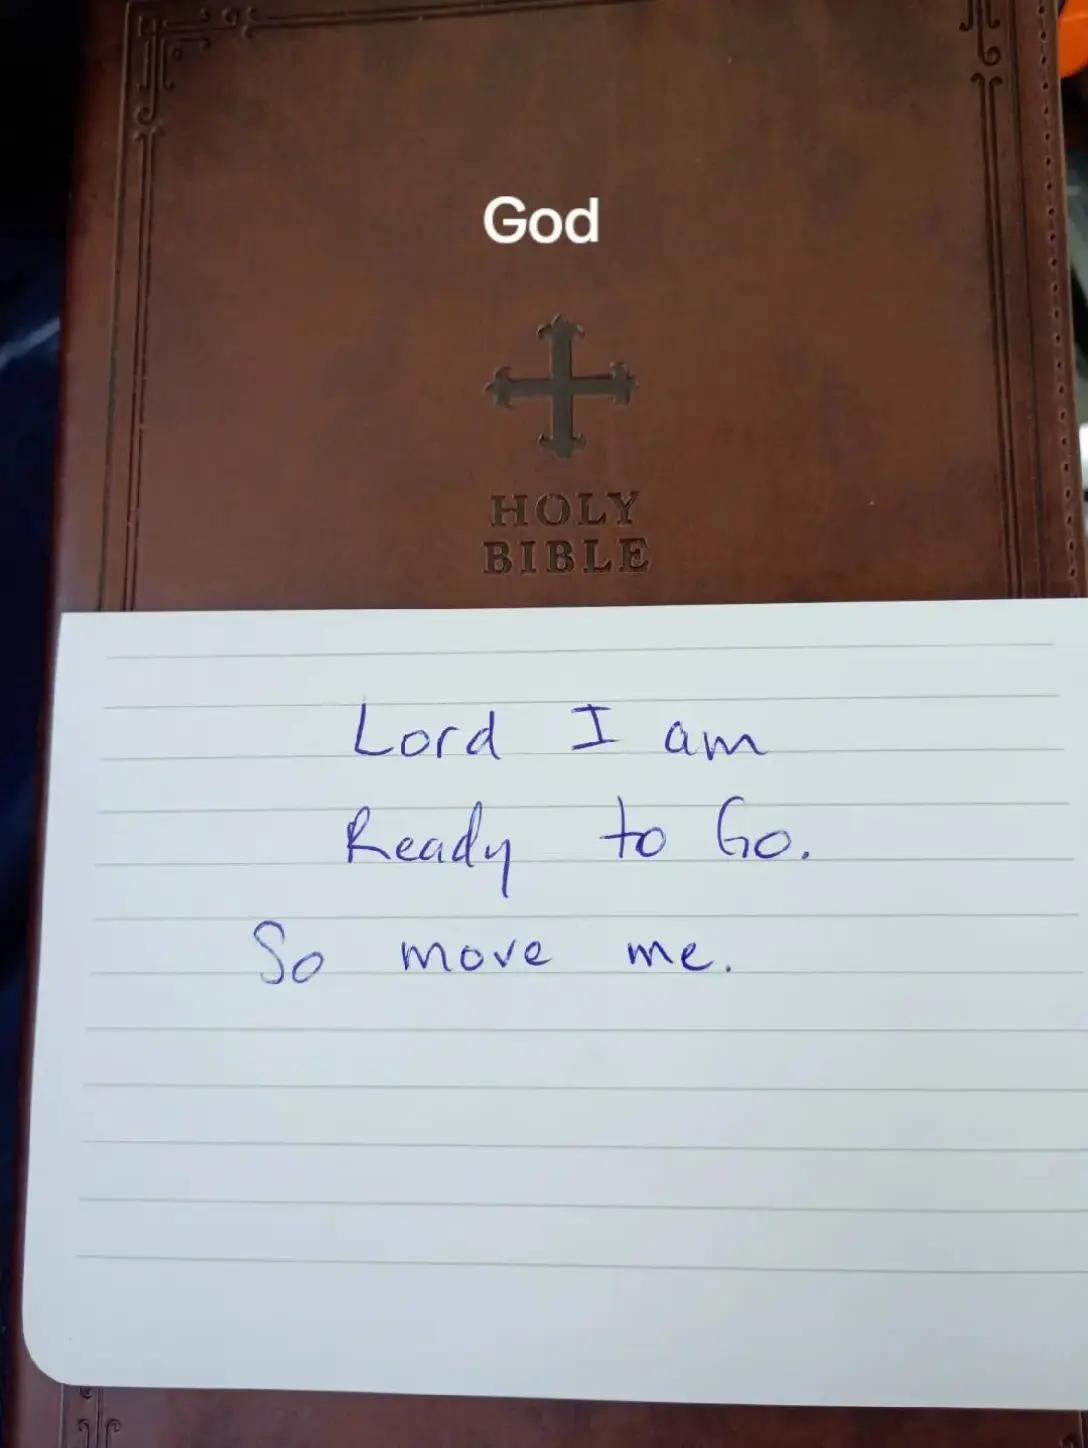 God
HOLY
BIBLE
Lord I am
Ready to Go.
So move me.